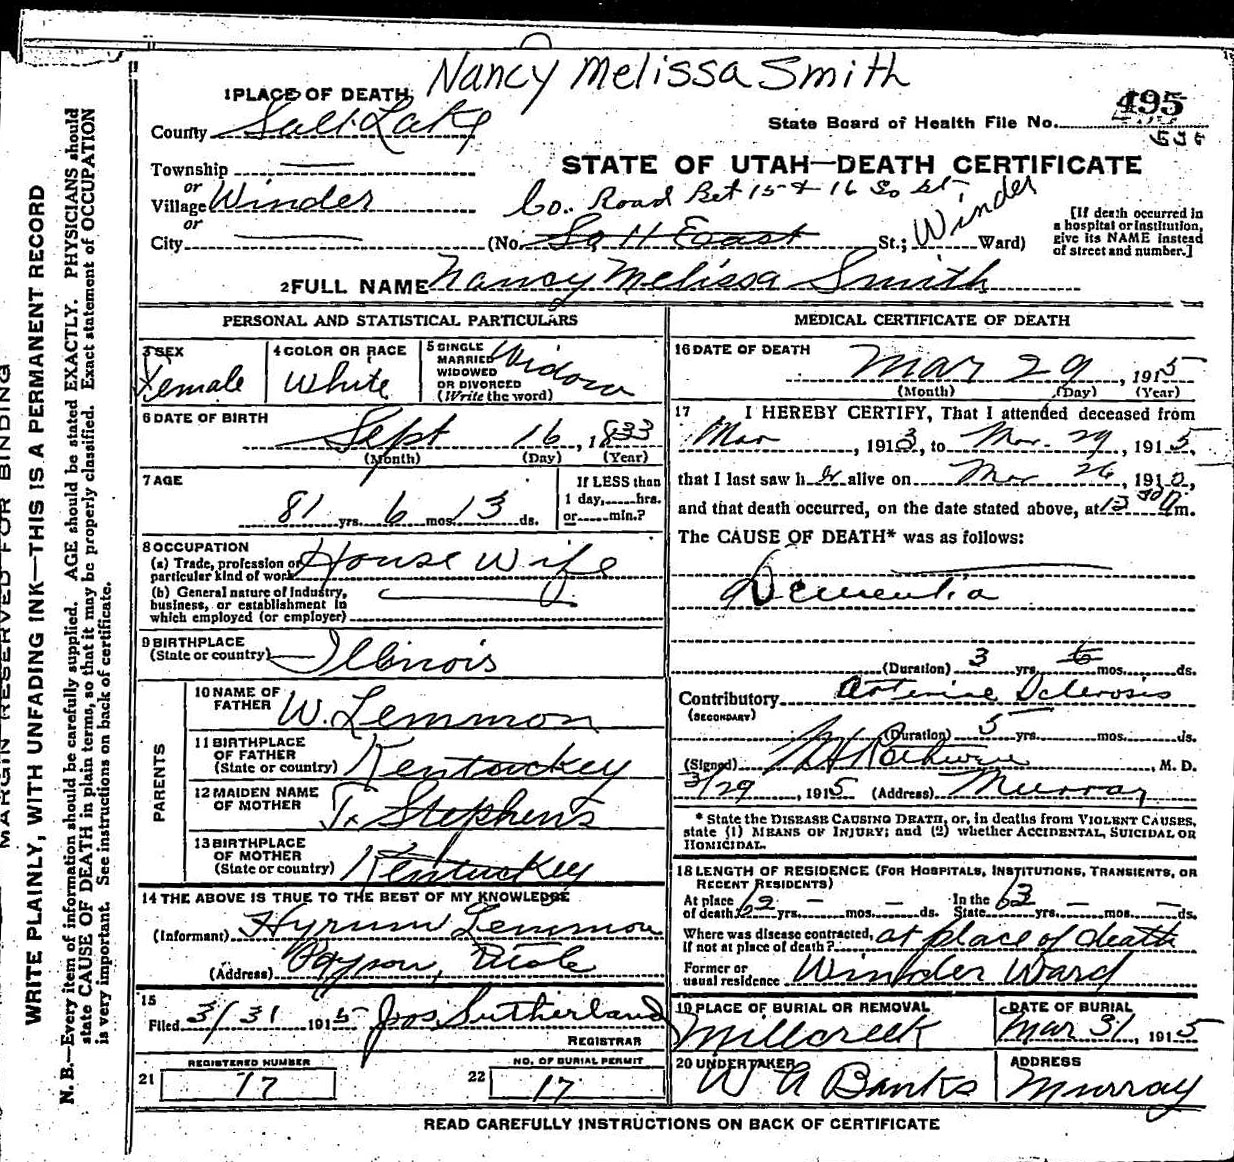 Nancy Melissa Smith
1 PLACE OF DEATH
495
County Salt Lake
State Board of Health File No.
Township
STATE OF UTAH—DEATH CERTIFICATE
or
Village Winder
Co. Road Bet 15 & 16 So St
or
City
(No. So 11 East St.; Winder Ward)
[If death occurred in
a hospital or institution,
give its NAME instead
of street and number.]
2 FULL NAME Nancy Melissa Smith
PERSONAL AND STATISTICAL PARTICULARS
3 SEX
Female
4 COLOR OR RACE
White
5 SINGLE
MARRIED
WIDOWED
OR DIVORCED
(Write the word)
Widow
6 DATE OF BIRTH
Sept 16, 1833
(Month) (Day) (Year)
7 AGE
81 yrs. 6 mos. 13 ds.
If LESS than
1 day, hrs.
or min.?
8 OCCUPATION
(a) Trade, profession or
particular kind of work House Wife
(b) General nature of industry,
business, or establishment in
which employed (or employer)
9 BIRTHPLACE
(State or country) Illinois
PARENTS
10 NAME OF
FATHER W. Lemmon
11 BIRTHPLACE
OF FATHER
(State or country) Kentuckey
12 MAIDEN NAME
OF MOTHER T. Stephens
13 BIRTHPLACE
OF MOTHER
(State or country) Kentuckey
14 THE ABOVE IS TRUE TO THE BEST OF MY KNOWLEDGE
(Informant) Hyrum Lemmon
(Address) Payson, Utah
15
Filed 3/31 1915 Jos. Sutherland
REGISTRAR
REGISTERED NUMBER
21 17
NO. OF BURIAL PERMIT
22 17
MEDICAL CERTIFICATE OF DEATH
16 DATE OF DEATH
Mar 29, 1915
(Month) (Day) (Year)
17 I HEREBY CERTIFY, That I attended deceased from
Mar, 1913, to Mar. 29, 1915,
that I last saw her alive on Mar 26, 191
and that death occurred, on the date stated above, at 12 30 m.
The CAUSE OF DEATH* was as follows:
Dementia
(Duration) 3 yrs. 6 mos. ds.
Contributory Arterial Sclerosis
(SECONDARY)
(Duration) 5 yrs. mos. ds.
(Signed) , M. D.
3/29, 1915 (Address) Murray
* State the DISEASE CAUSING DEATH, or, in deaths from VIOLENT CAUSES,
state (1) MEANS OF INJURY; and (2) whether ACCIDENTAL, SUICIDAL OR
HOMICIDAL.
18 LENGTH OF RESIDENCE (FOR HOSPITALS, INSTITUTIONS, TRANSIENTS, OR
RECENT RESIDENTS)
At place
of death 12 yrs. – mos. – ds.
In the
State 63 yrs. – mos. – ds.
Where was disease contracted,
if not at place of death? at place of death
Former or
usual residence Winder Ward
19 PLACE OF BURIAL OR REMOVAL
Millcreek
DATE OF BURIAL
Mar 31, 1915
20 UNDERTAKER
W A Banks
ADDRESS
Murray
READ CAREFULLY INSTRUCTIONS ON BACK OF CERTIFICATE
MARGIN RESERVED FOR BINDING
WRITE PLAINLY, WITH UNFADING INK—THIS IS A PERMANENT RECORD
N. B.—Every item of information should be carefully supplied. AGE should be stated EXACTLY. PHYSICIANS should
state CAUSE OF DEATH in plain terms, so that it may be properly classified. Exact statement of OCCUPATION
is very important. See instructions on back of certificate.